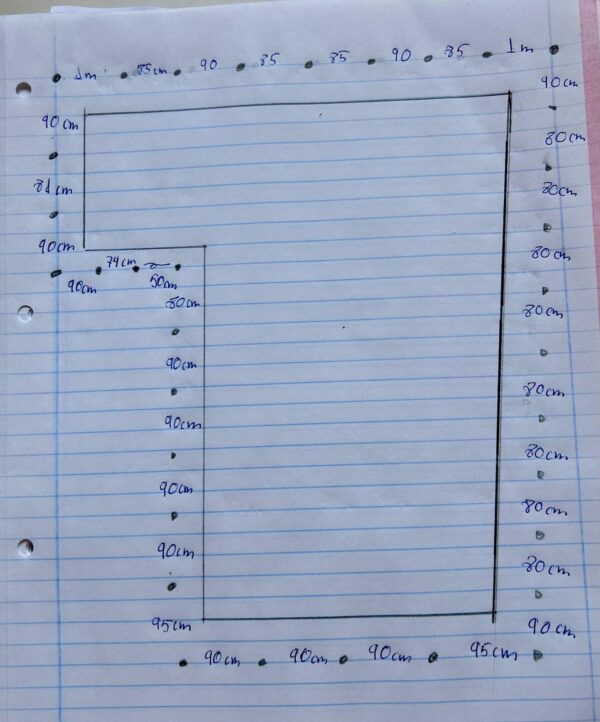 1m 85cm 90 85 85 90 85 1m
90cm
90cm
80cm
81cm
80cm
90cm
80cm
74cm
90cm 50cm
80cm
80cm
90cm
80cm
90cm
80cm
90cm
80cm
90cm
80cm
95cm
90cm
90cm 90cm 90cm 95cm